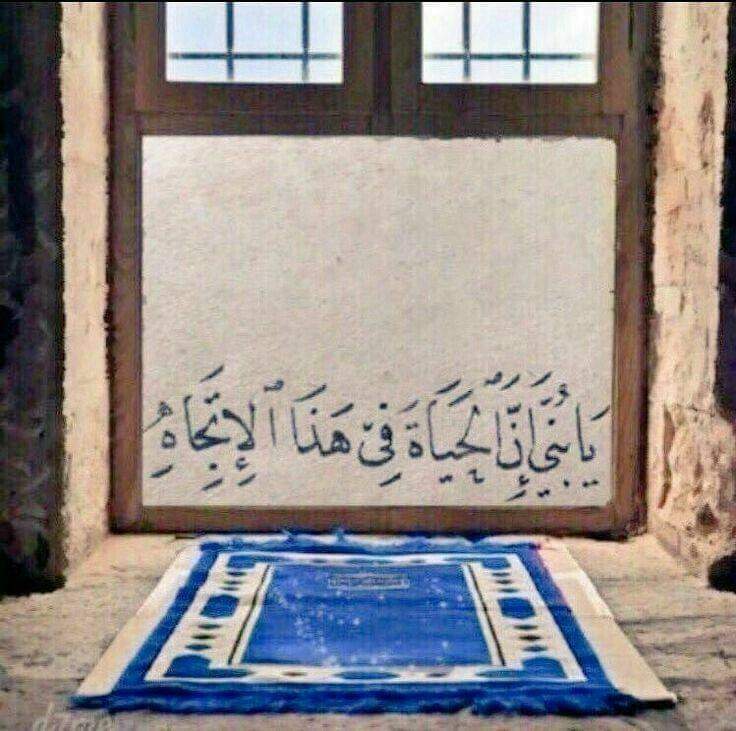 يَا بُنَيَّ إِنَّ ٱلْحَيَاةَ فِي هَذَا ٱلْإِتِّجَاهِ